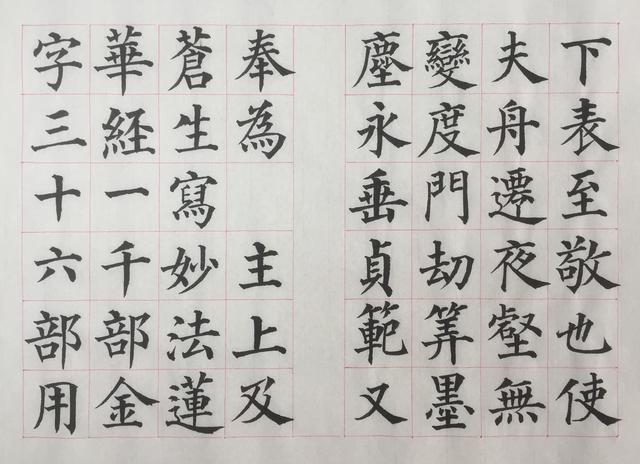 下表至敬也使
夫舟遷夜壑無
變度門劫筭墨
塵永垂貞範又
奉為 主上及
蒼生寫妙法蓮
華經一千部金
字三十六部用